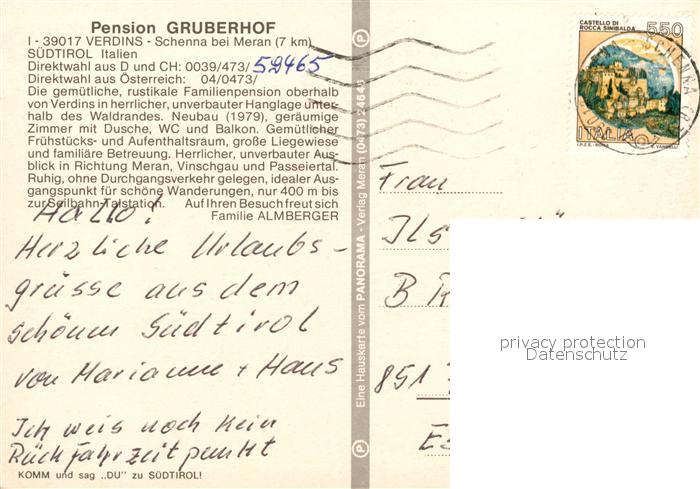 Pension GRUBERHOF
I - 39017 VERDINS - Schenna bei Meran (7 km)
SÜDTIROL Italien
Direktwahl aus D und CH: 0039/473/ 59465
Direktwahl aus Österreich: 04/0473/
Die gemütliche, rustikale Familienpension oberhalb
von Verdins in herrlicher, unverbauter Hanglage unter-
halb des Waldrandes. Neubau (1979), geräumige
Zimmer mit Dusche, WC und Balkon. Gemütlicher
Frühstücks- und Aufenthaltsraum, große Liegewiese
und familiäre Betreuung. Herrlicher, unverbauter Aus-
blick in Richtung Meran, Vinschgau und Passeiertal.
Ruhig, ohne Durchgangsverkehr gelegen, idealer Aus-
gangspunkt für schöne Wanderungen, nur 400 m bis
zur Seilbahn-Talstation. Auf Ihren Besuch freut sich
Familie ALMBERGER
Hallo!
Herzliche Urlaubs-
grüsse aus dem
schönen Südtirol
von Marianne + Hans
Ich weis noch kein
Rückfahrzeitpunkt
KOMM und sag „DU" zu SÜDTIROL!
Eine Hauskarte vom PANORAMA - Verlag Meran (0473) 24646
CASTELLO DI
ROCCA SINIBALDA
550
ITALIA
I.P.Z.S. - ROMA
Frau
Ils
B
851
privacy protection
Datenschutz